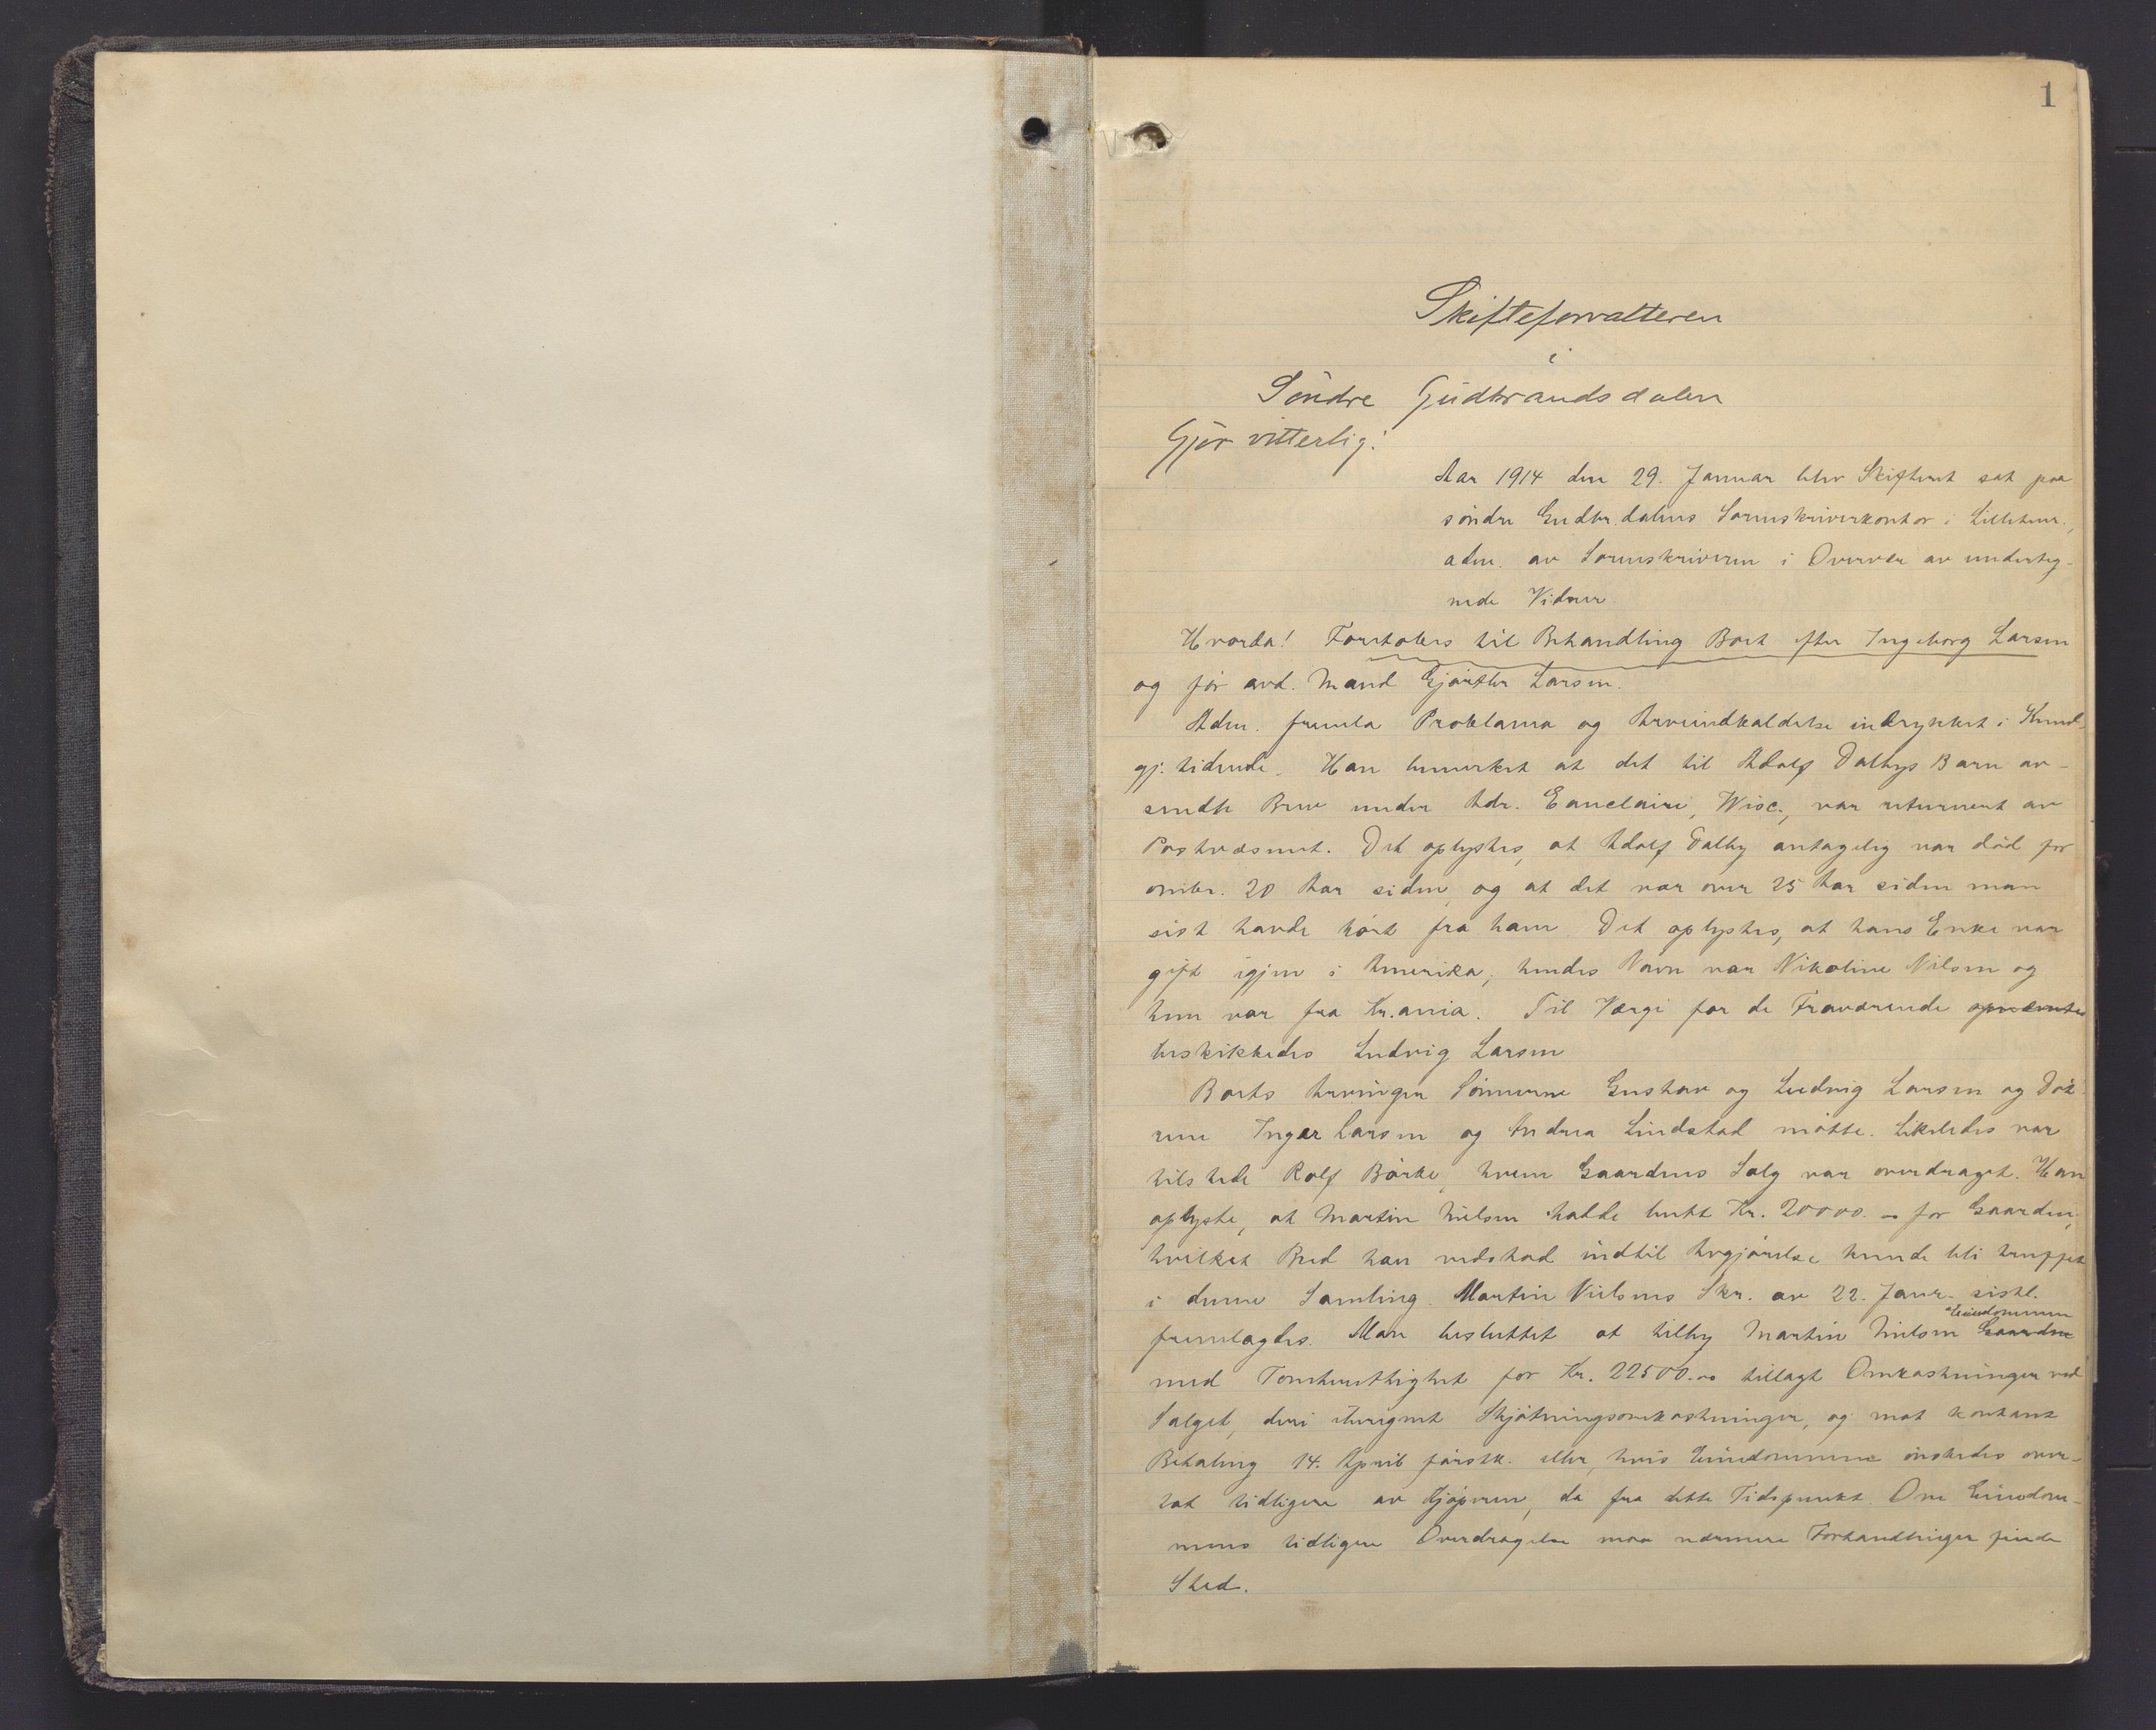 1
Skifteforvalteren
i
Söndre Gudbrandsdalen
Gjør vitterlig:
Aar 1914 den 29. Januar blev Skifteret sat paa
söndre Gudbr.dalens Sorenskriverkontor i Lilleham.,
adm. av Sorenskriveren i Overvær av underteg-
nede Vidner.
Hvorda! Foretokes til Behandling Boet efter Ingeborg Larsen
og før avd. Mand Larsen.
Adm. fremla Proklama og Arveindkaldelse indrykket i Kund-
gj. tidende. Han bemerket at det til Adolf Dalbys Barn av-
sendte Brev under Adr. Eauclaire, Wisc., var returnert av
Postvæsenet. Det oplystes, at Adolf Dalby antagelig var död for
omtr. 20 Aar siden, og at det var over 25 Aar siden man
sist havde hört fra ham. Det oplystes, at hans Enke var
gift igjen i Amerika, hendes Navn var Nikoline Nilsen og
hun var fra Kr.ania. Til Værge for de Fraværende opnævntes
beskikkedes Ludvig Larsen
Boets Arvinger Sönnerne Gustav og Ludvig Larsen og Döt-
rene Inger Larsen og Andrea Lindstad mötte. Likeledes var
tilstede Rolf Börke, hvem Gaardens Salg var overdraget. Han
oplyste, at Martin Nielsen hadde budt Kr. 20000.- for Gaarden,
hvilket Bud han vedstod indtil Avgjörelse kunde bli truffet
i denne Samling. Martin Nielsens Skr. av 22. Janr. sistl.
fremlagdes. Man besluttet at tilby Martin Nielsen Gaarden Eiendommen
med Tomtensthighet for Kr. 22500.00 tillagt Omkostninger ved
Salget, deri iberegnet Skjötningsomkostninger, og mot kontant
Betaling 14. April förstk. eller, hvis Eiendommen önskedes over-
tat tidligere av Kjöperen, da fra dette Tidspunkt. Om Eiendom-
mens tidligere Overdragelse maa nærmere Forhandlinger finde
Sted.